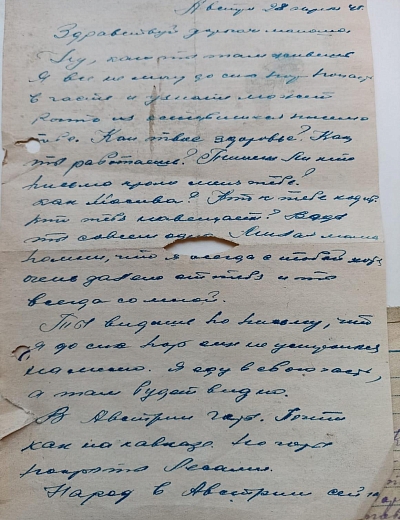 Австрия 28 апреля 45.
Здравствуй дорогая мамочка.
Ну, как ты там живешь
Я все не могу до сих пор попасть
в часть и узнать может
есть из письмо
твое. Как твое здоровье? Как
ты работаешь? Пишет ли кто
письмо кроме меня тебе?
Как Москва? Кто к тебе ходит
Кто тебя навещает?
ты совсем одна мама
помни, что я всегда с тобой хоть
очень далеко от тебя и ты
всегда со мной.
Ты видишь по письму, что
я до сих пор еще не
на место. Я еду в свою часть,
а там будет видно.
В Австрии горы. Почти
как на кавказе. Но горы
покрыты лесами.
Народ в Австрии